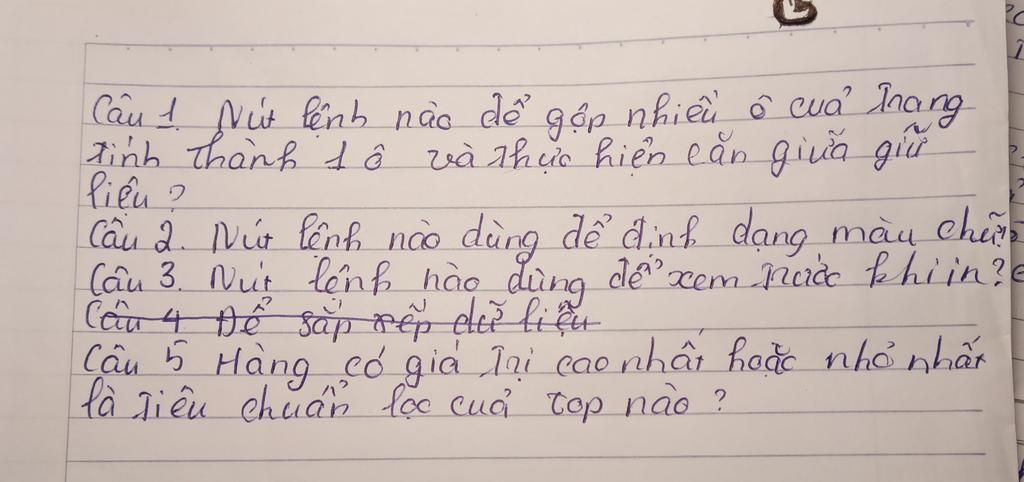 Câu 1. Nút lệnh nào để gộp nhiều ô cuả Trang
tính thành 1 ô và thực hiện căn giữa giữ
liệu ?
Câu 2. Nút lệnh nào dùng để định dạng màu chữ?
Câu 3. Nút lệnh nào dùng để xem trước khi in?
Câu 4 Để sắp xếp dữ liệu
Câu 5 Hàng có giá trị cao nhất hoặc nhỏ nhất
là tiêu chuẩn lọc cuả top nào ?